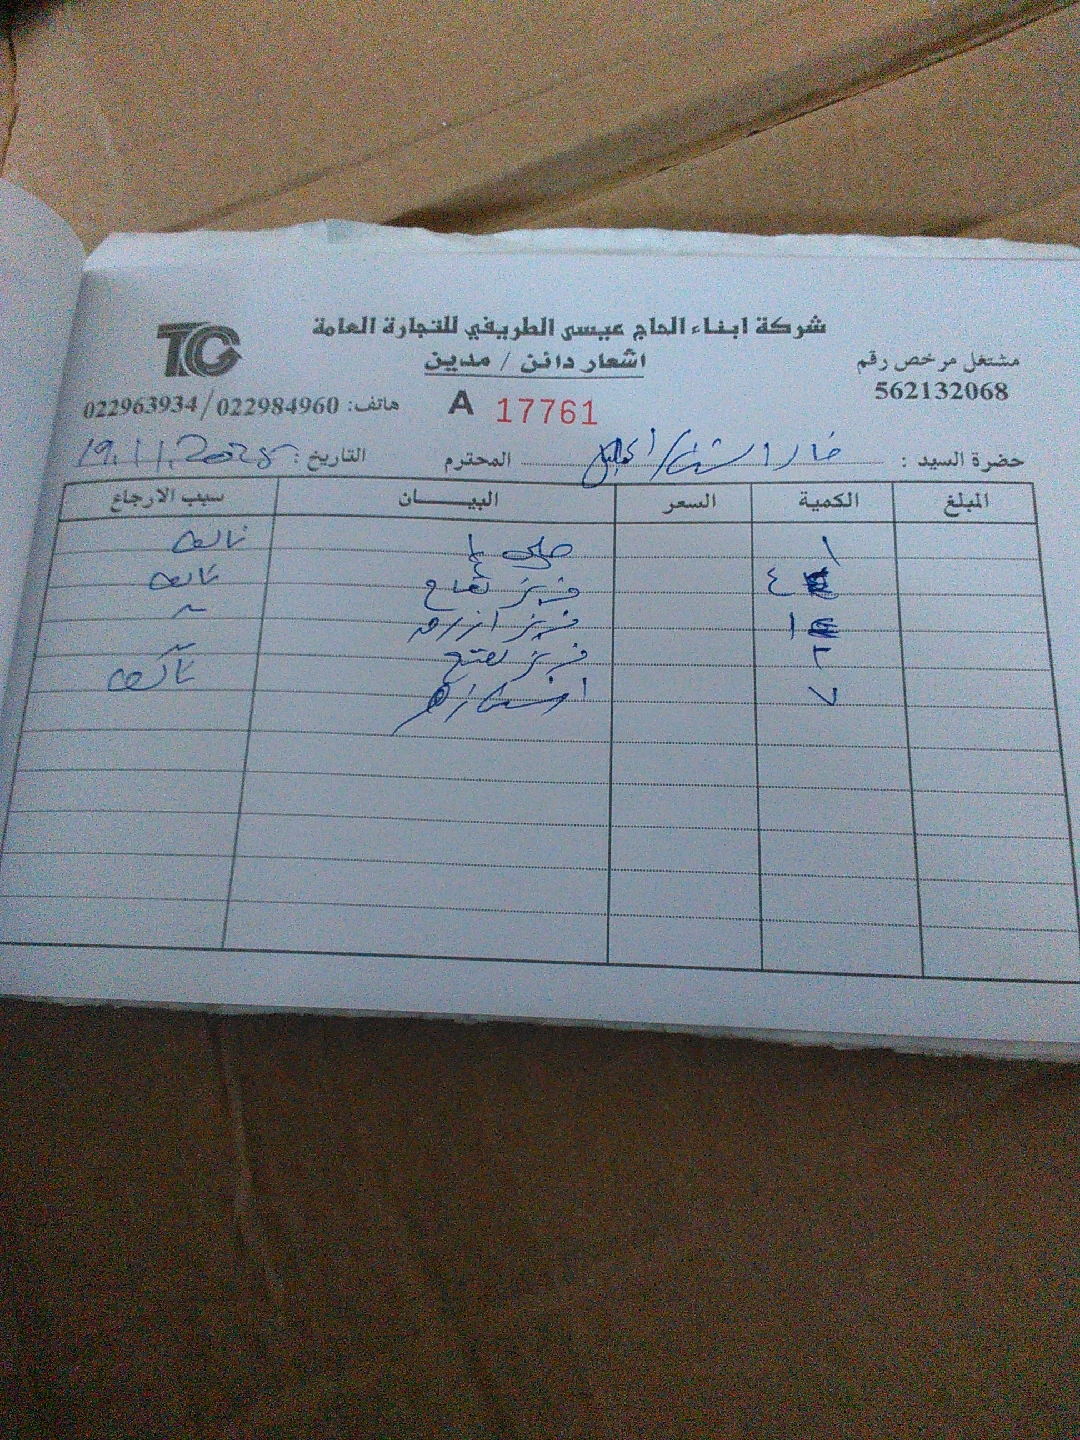 شركة ابناء الحاج عيسى الطريفي للتجارة العامة
TC
اشعار دائن / مدين
مشتغل مرخص رقم
562132068
هاتف: 022984960/022963934
A 17761
حضرة السيد : المحترم
التاريخ : 19.11.2025
المبلغ الكمية السعر البيـــــان سبب الارجاع
١ تالف
٤ فريز تفاح تالف
١ فريز ازرق
٢ فريز تفاح تالف
٧